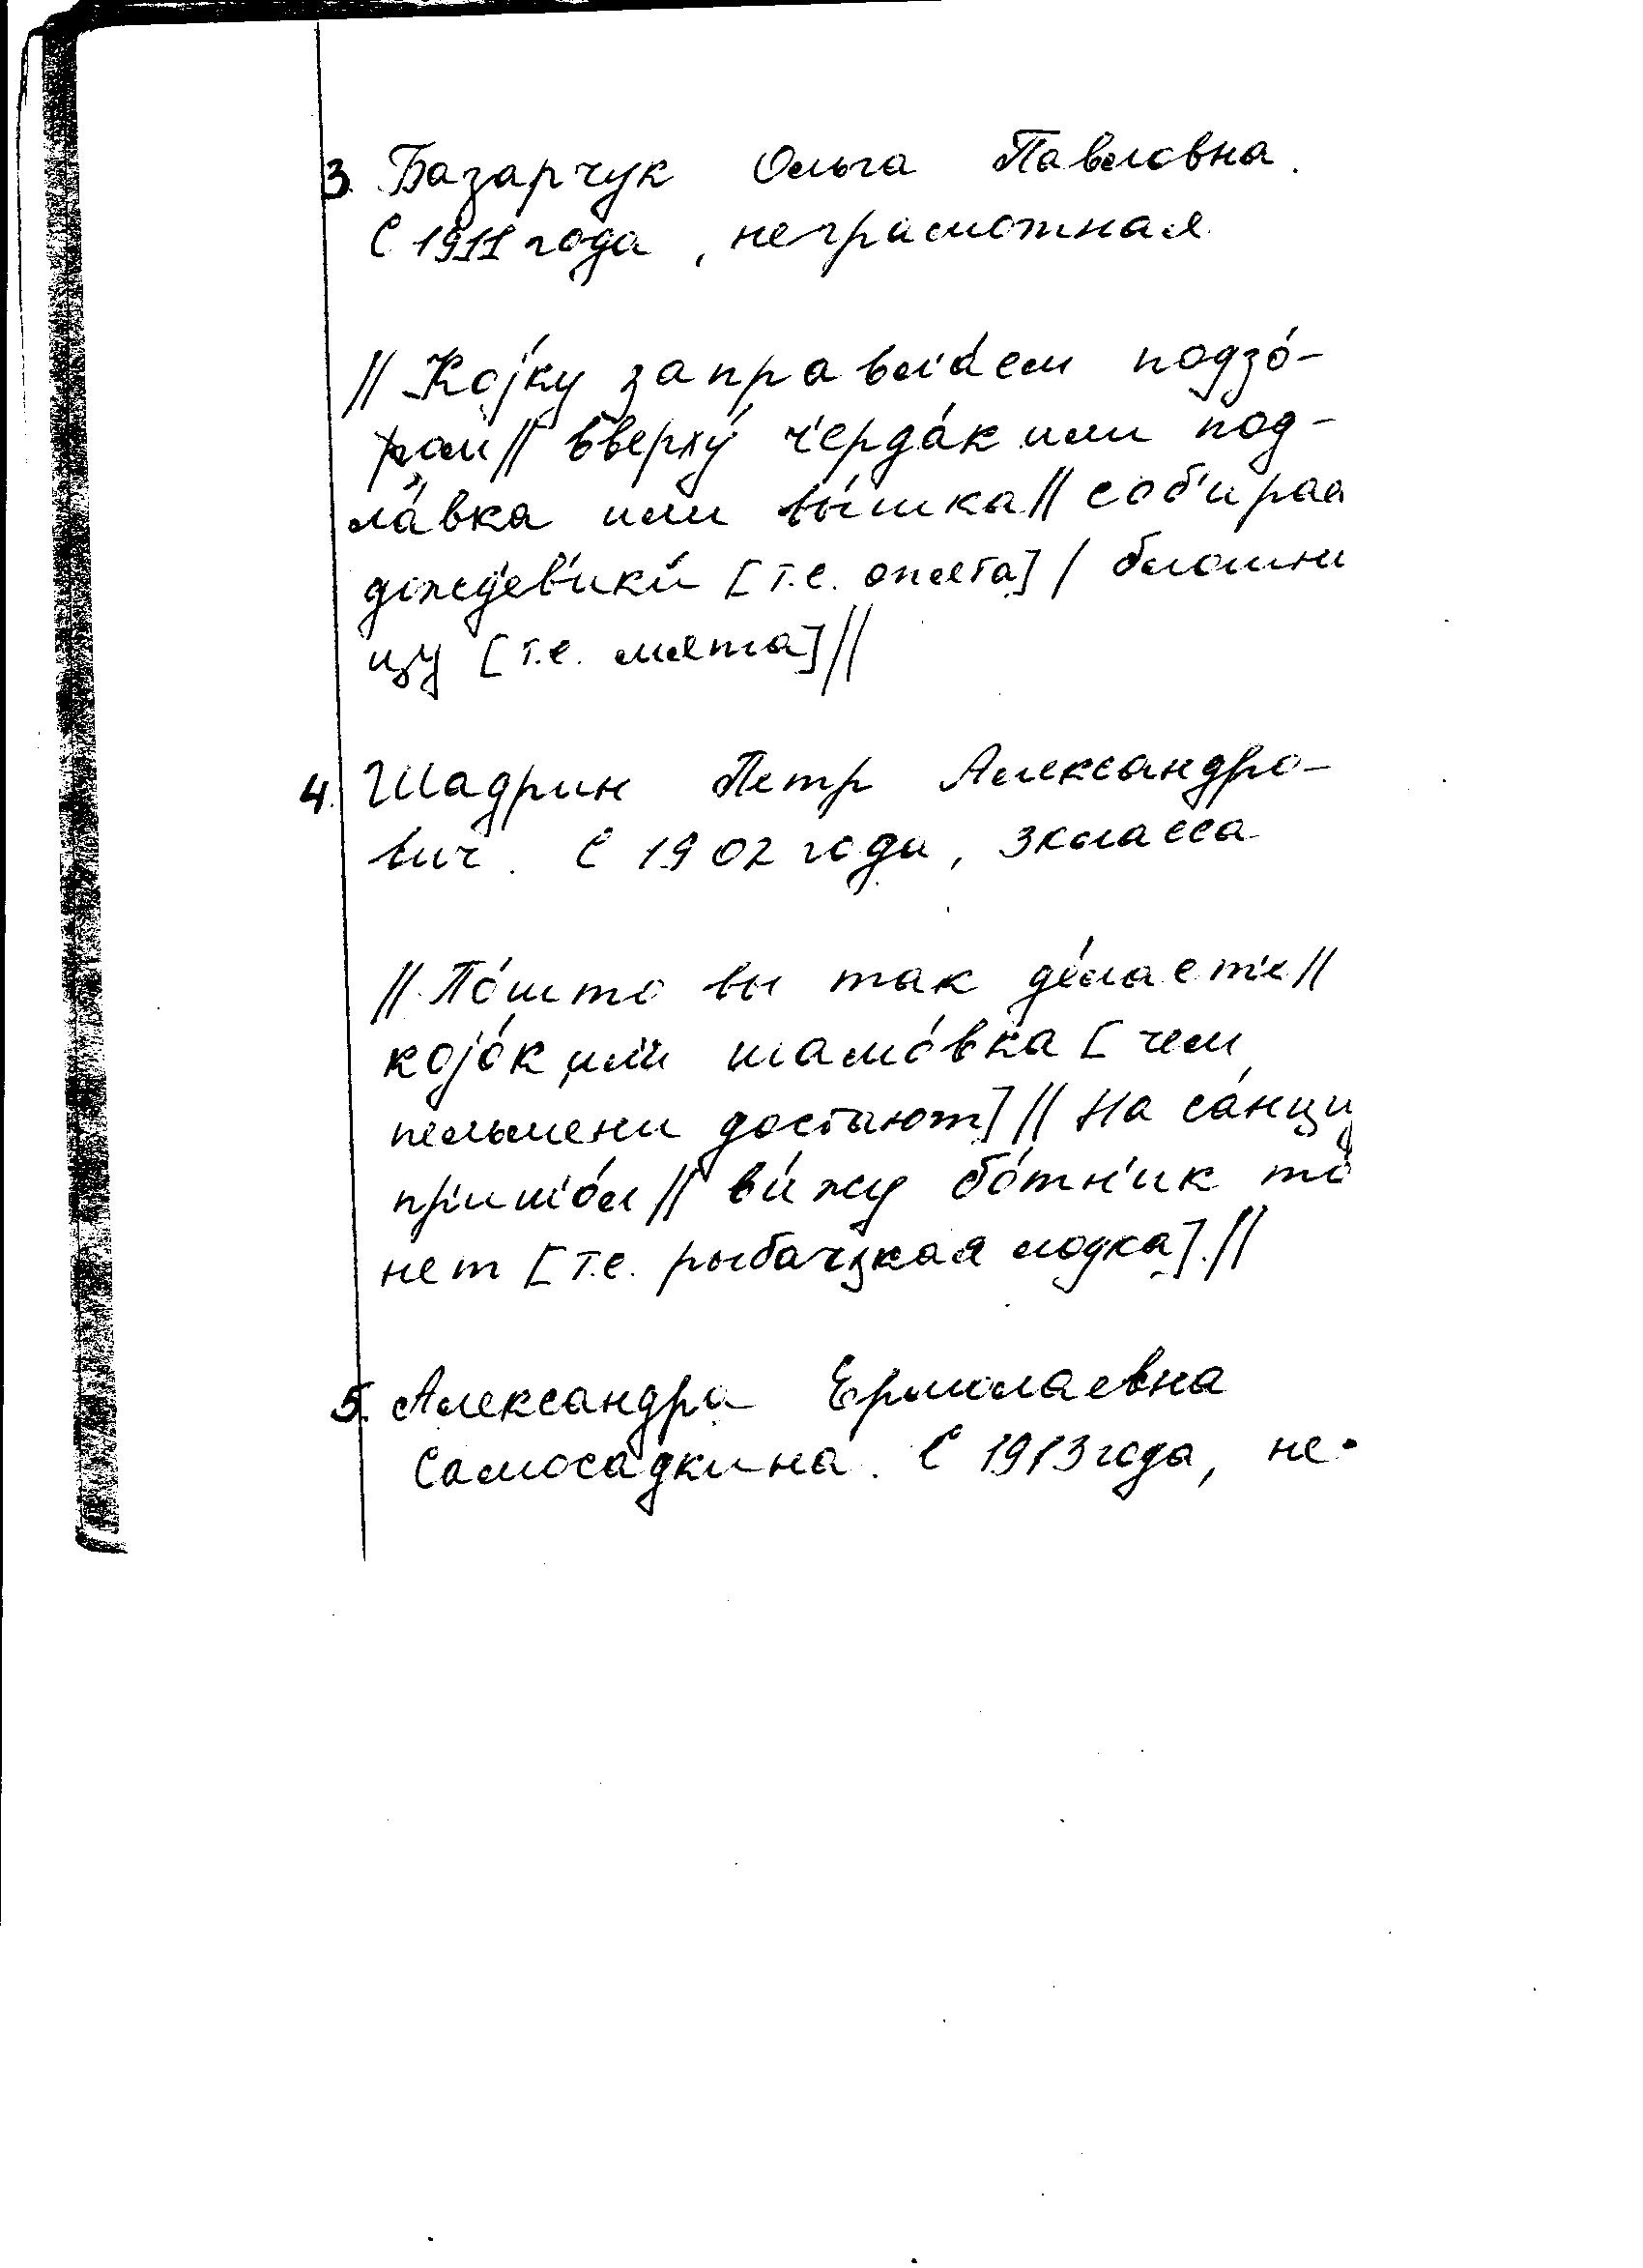 3. Базарчук Ольга Павловна.
С 1911 года, неграмотная
// Ко́jку заправл'а́ем подзо́-
ром // вверху́ ч'ерда́к или под-
ла́вка или вы́шка // соб'ираа
дожд'ев'ики́ [т.е. опята] / блошни
цу [т.е. мята] //
4. Шадрин Петр Александро-
вич. С 1902 года, 3 класса
// По́што вы так де́лает'е //
коjо́к ил'и шамо́вка [чем
пельмени достают] // На са́нцы
пр'ишо́л // ви́жу бо́тн'ик то
нет [т.е. рыбацкая лодка]. //
5. Александра Ермолаевна
Самосадкина. С 1913 года, не-